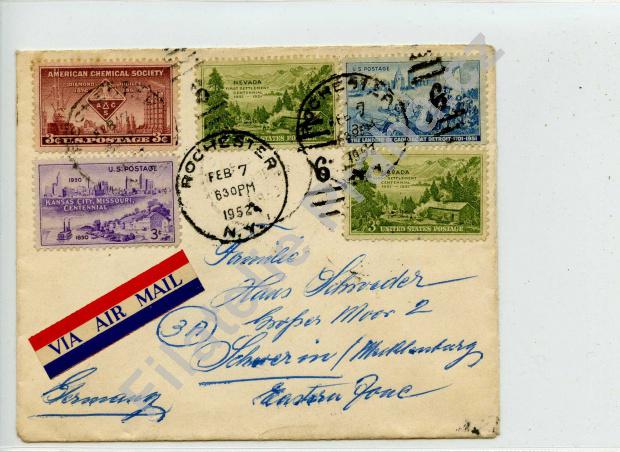 AMERICAN CHEMICAL SOCIETY
DIAMOND JUBILEE
3¢ U.S. POSTAGE 3¢
NEVADA
FIRST SETTLEMENT
CENTENNIAL
1851-1951
UNITED STATES POSTAGE
U.S. POSTAGE
THE LANDING OF CADILLAC AT DETROIT 1701-1951
1950
U.S. POSTAGE
KANSAS CITY, MISSOURI,
CENTENNIAL
1850
3¢
ROCHESTER
FEB 7
630PM
1952
N.Y.
6
ROCHESTER
FEB 7
N.Y.
6
SETTLEMENT
CENTENNIAL
1851-1951
3¢ UNITED STATES POSTAGE
VIA AIR MAIL
Familie
Hans Schroeder
3A
Großer Moor 2
Schwerin/Mecklenburg
Germany
Eastern Zone